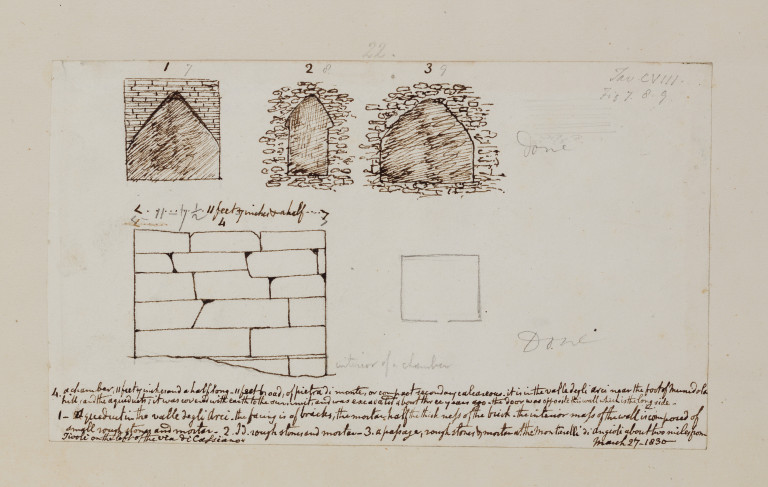 22.
1 7 2 8 3 9
Tav CVIII.
Fig 7. 8. 9.
Done
11 feet 7 inches & a half
4
Done
interior of a chamber
4. a chamber, 11 feet 7 inches and a half long. 11 feet broad, of pietra di monte, or compact secondary calcareous. it is in the valle degli Arci near the foot of
hill, and the aqueduct; it was covered with earth to the summit, and was excavated about three years ago. the door was opposite the wall which is the long side.
1 - Aqueduct in the valle degli Arci. the facing is of bricks, the mortar, half the thickness of the brick. the interior mass of the wall is composed of
small rough stones and mortar - 2. Id. rough stones and mortar - 3. a passage, rough stones & mortar at the Monticelli di about two miles from
Tivoli on the left of the via di Casciano
March 27 - 1830